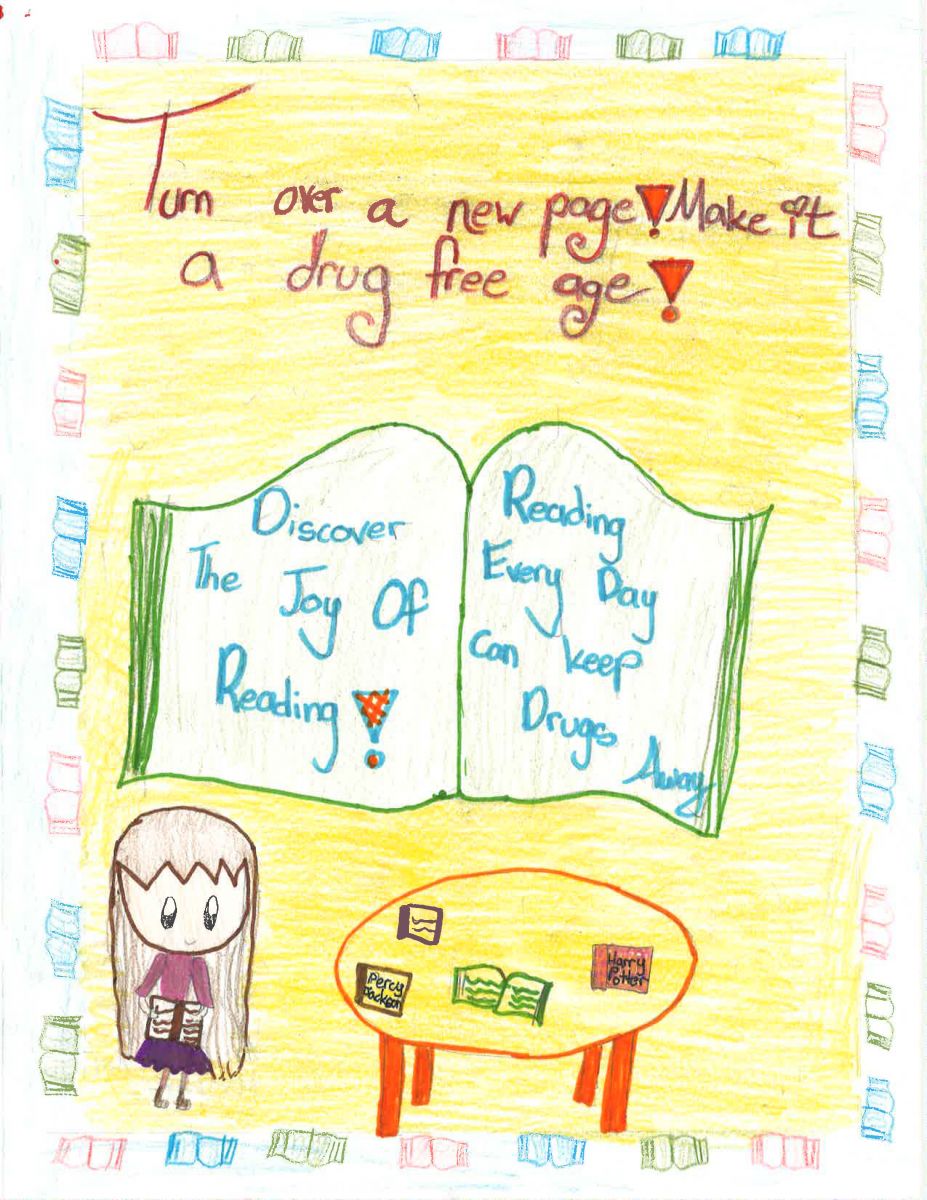 Turn over a new page! Make it
a drug free age!
Discover
The Joy Of
Reading!
Reading
Every Day
can keep
Drugs
Away
Percy
Jackson
Harry
Potter